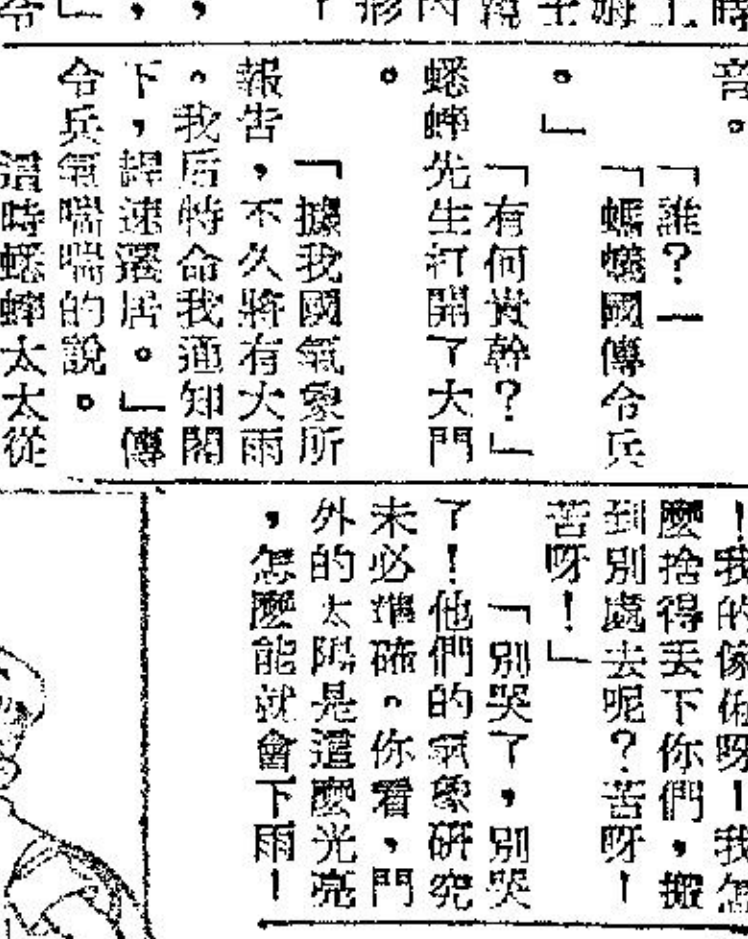 音。
「誰？」
「螞蟻國傳令兵
。」
「有何貴幹？」
蟋蟀先生打開了大門
。
「據我國氣象所
報告，不久將有大雨
。我后特命我通知閣
下，趕速遷居。」傳
令兵氣喘喘的說。
這時蟋蟀太太從
！我的傢俬呀！我怎
麼捨得丟下你們，搬
到別處去呢？苦呀！
苦呀！」
「別哭了，別哭
了！他們的氣象研究
未必準確。你看，門
外的太陽是這麼光亮
，怎麼能就會下雨！